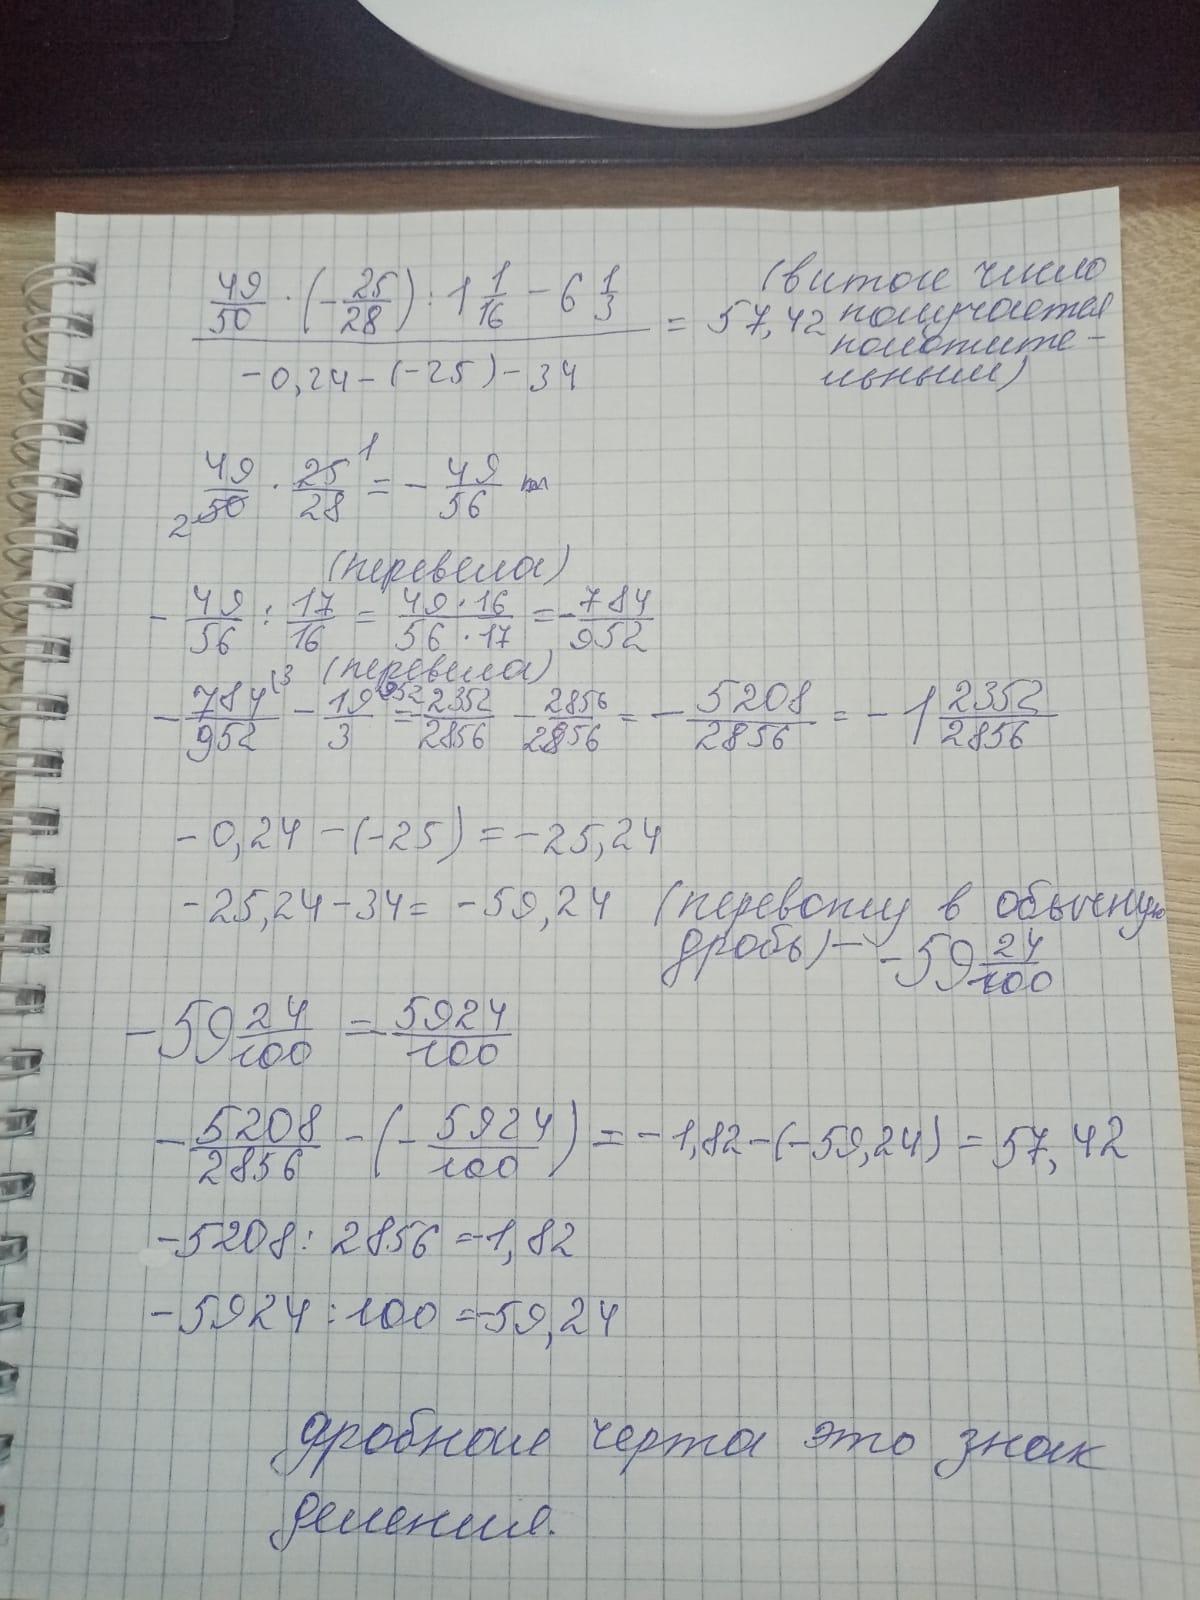 49/50 · (-25/28) : 1 1/16 - 6 1/3
-0,24-(-25)-34
= 57,42
(в итоге число
получается
положите-
льным)
49/50 · 25/28 = - 49/56
2 1
(перевела)
- 49/56 : 17/16 = 49·16/56·17 = - 784/952
(перевела)
- 784/952 \3 - 19/3 \952 = - 2352/2856 - 2856/2856 = - 5208/2856 = - 1 2352/2856
-0,24 -(-25) = -25,24
-25,24-34= -59,24 (перевожу в обычную
дробь) - -59 24/100
-59 24/100 = - 5924/100
- 5208/2856 - (- 5924/100) = -1,82-(-59,24) = 57,42
-5208 : 2856 = -1,82
-5924 : 100 = -59,24
дробная черта это знак
деления.